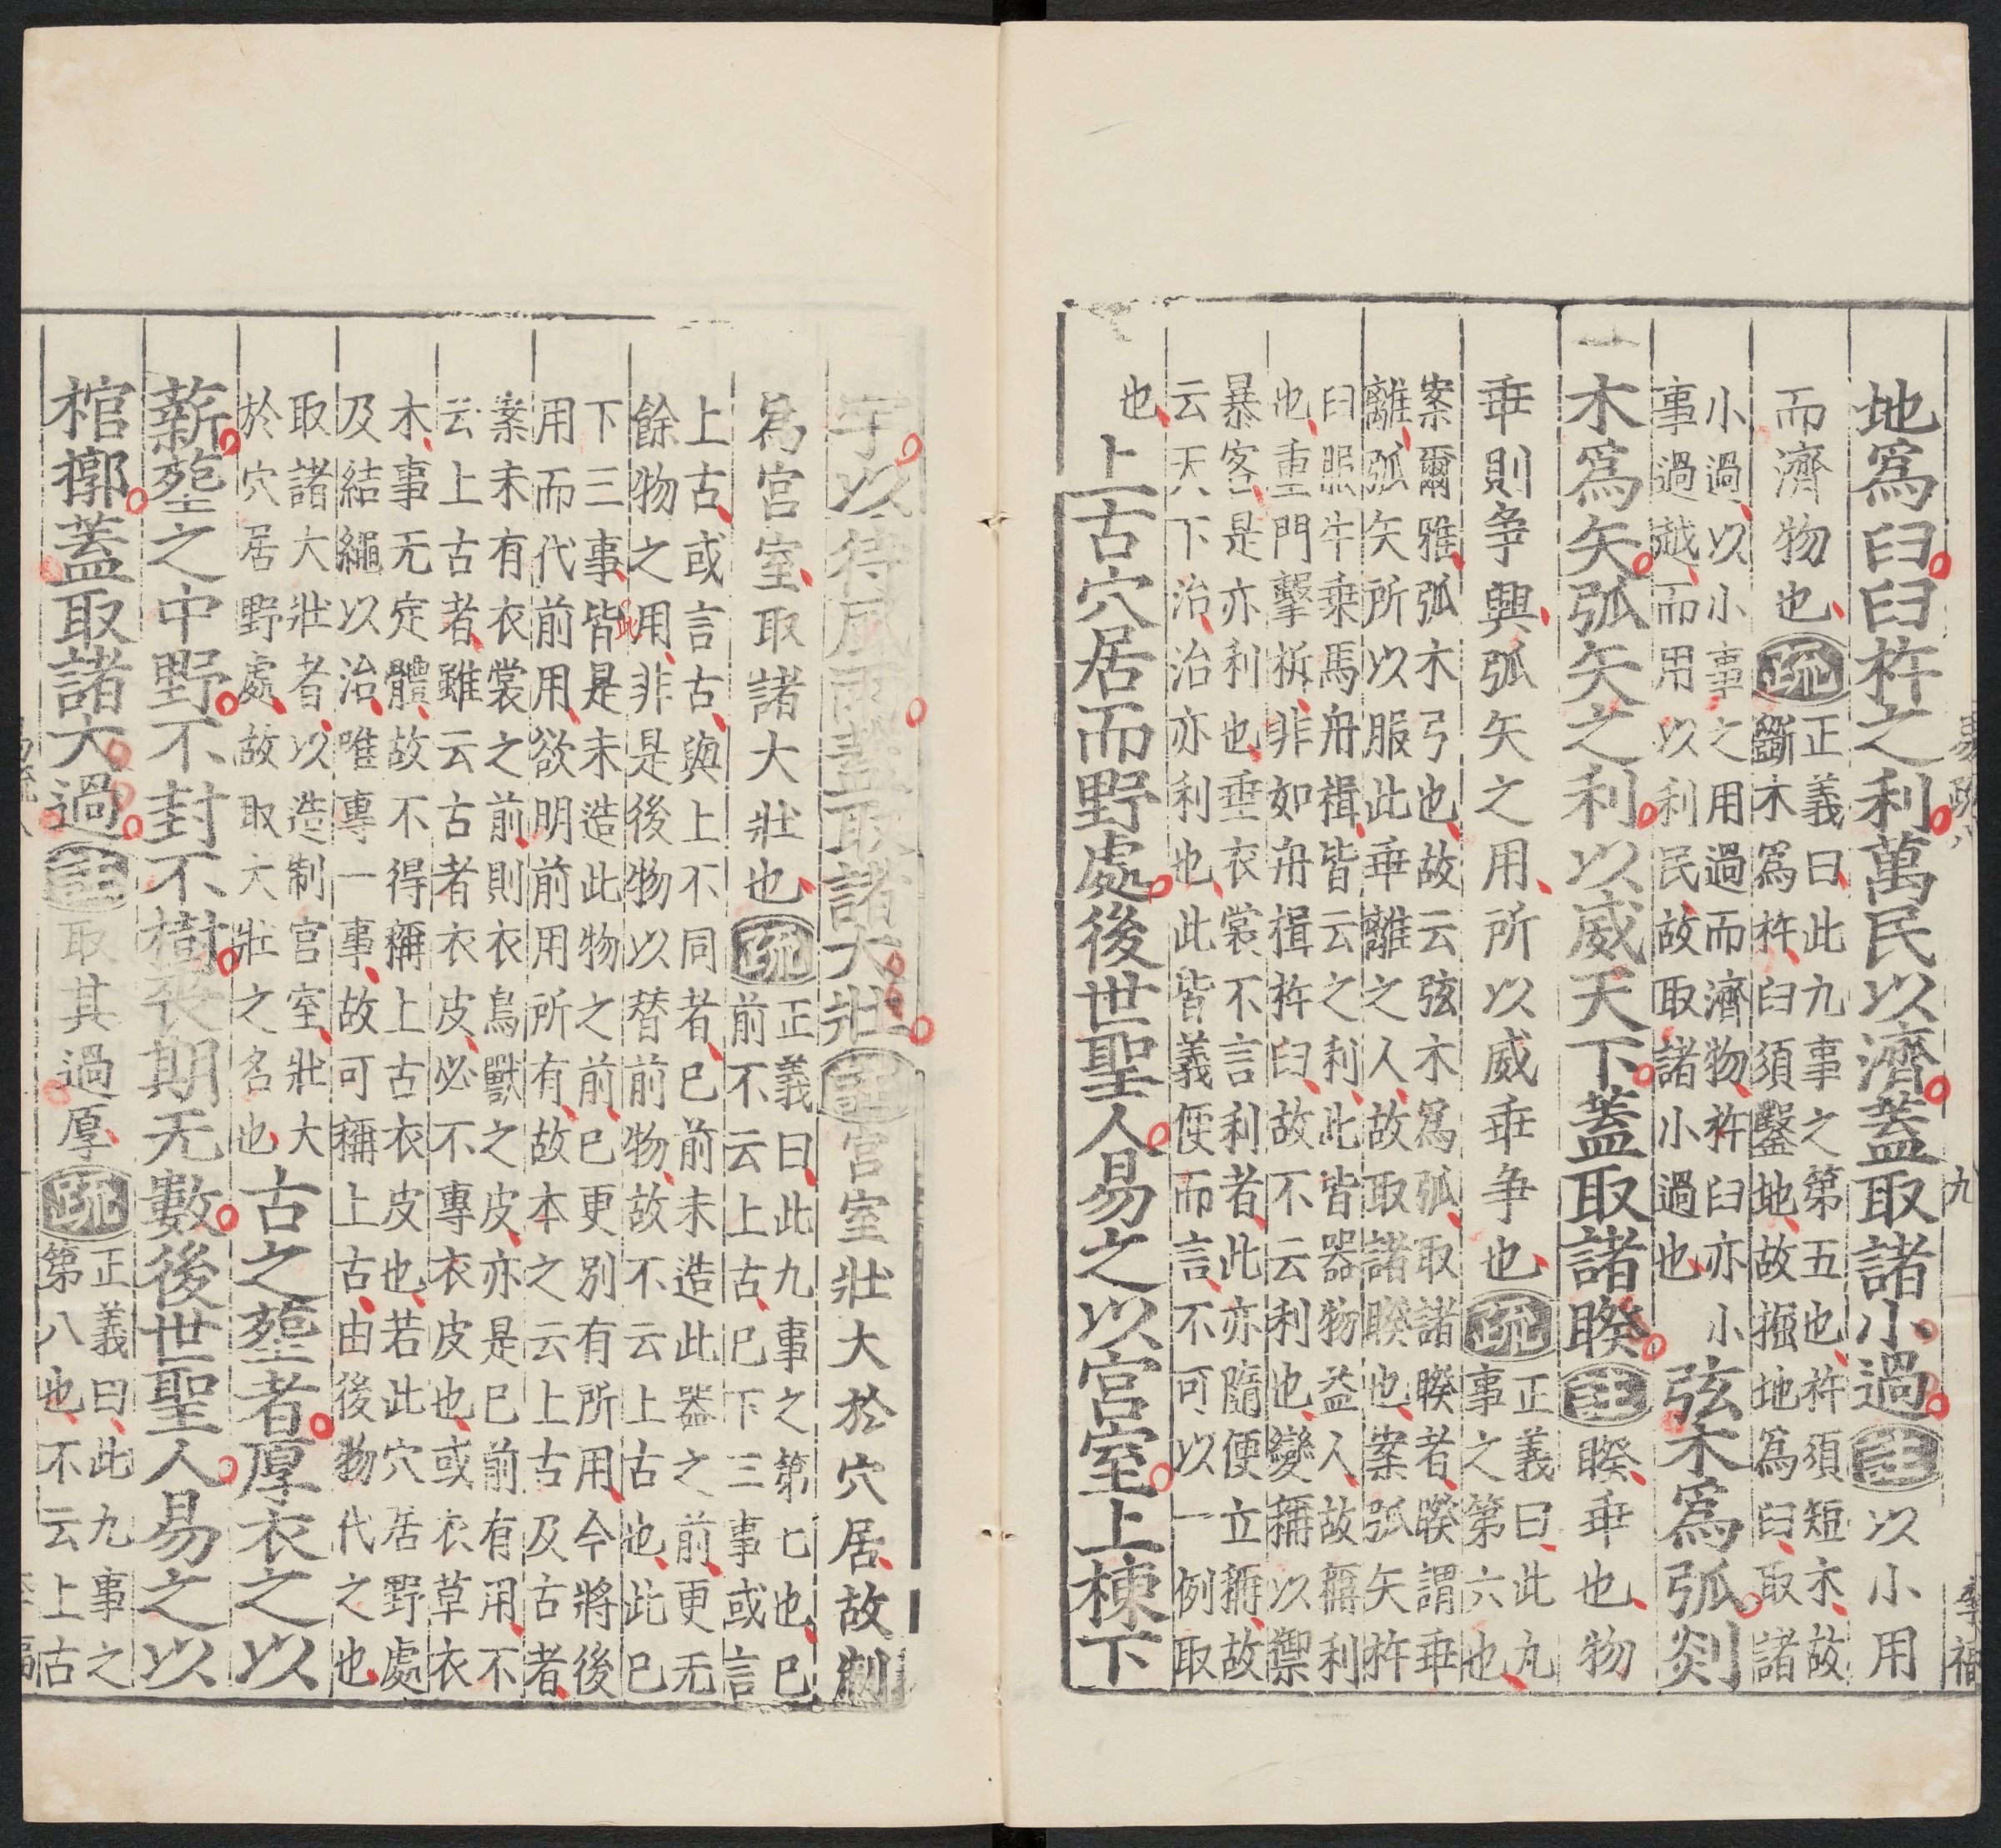 易疏八 九 李福
地爲臼臼杵之利萬民以濟蓋取諸小過注以小用
而濟物也疏正義曰此九事之第五也杵須短木故
斷木爲杵臼須鑿地故掘地爲臼取諸
小過以小事之用過而濟物杵臼亦小
事過越而用以利民故取諸小過也
弦木爲弧剡
木爲矢弧矢之利以威天下蓋取諸睽注睽乖也物
乖則爭興弧矢之用所以威乖爭也疏正義曰此九
事之第六也
案爾雅弧木弓也故云弦木爲弧取諸睽者睽謂乖
離弧矢所以服此乖離之人故取諸睽也案弧矢杵
臼服牛乘馬舟楫皆云之利此皆器物益人故稱利
也重門擊柝非如舟楫杵臼故不云利也變稱以禦
暴客是亦利也垂衣裳不言利者此亦隨便立稱故
云天下治治亦利也此皆義便而言不可以一例取
也
上古穴居而野處後世聖人易之以宮室上棟下
宇以待風雨蓋取諸大壯注宮室壯大於穴居故制
爲宮室取諸大壯也疏正義曰此九事之第七也已
前不云上古已下三事或言
上古或言古與上不同者已前未造此器之前更无
餘物之用非是後物以替前物故不云上古也此已
下三事皆是未造此物之前已更別有所用今將後
用而代前用欲明前前用所有故本之云上古及古者
案未有衣裳之前則衣鳥獸之皮亦是已前有用不
云上古者雖云古者衣皮必不專衣皮也或衣草衣
木事无定體故不得稱上古衣皮也若此穴居野處
及結繩以治唯專一事故可稱上古由後物代之也
取諸大壯者以造制宮室壯大
於穴居野處故取大壯之名也
古之葬者厚衣之以
薪葬之中野不封不樹喪期无數後世聖人易之以
棺槨蓋取諸大過注取其過厚疏正義曰此九事之
第八也不云上古